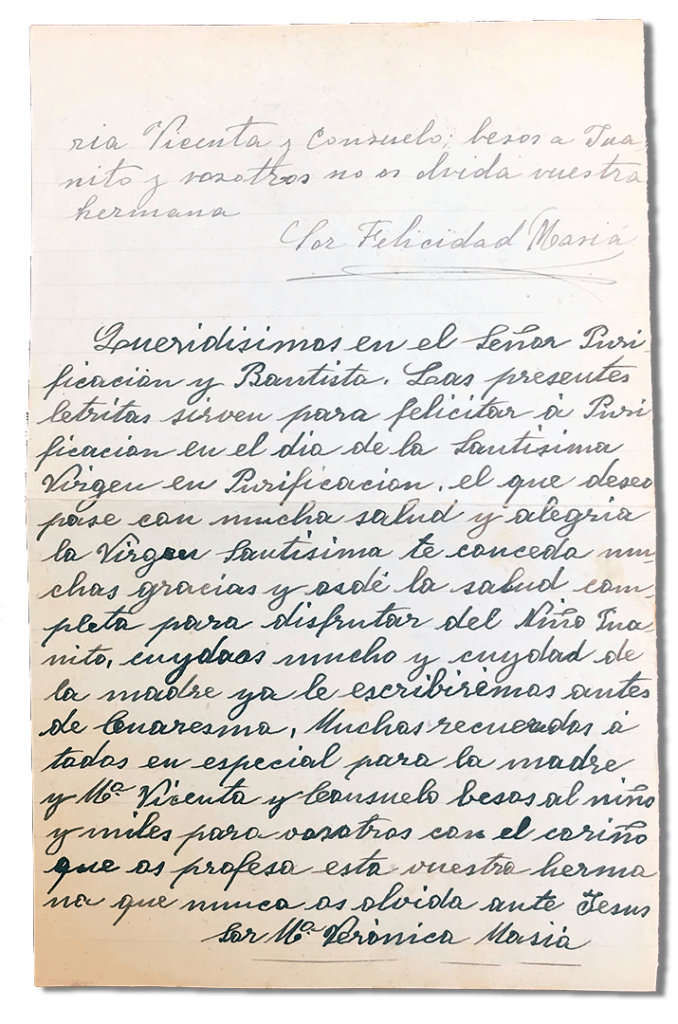 ria Vicenta y Consuelo; besos a Jua-
nito y vosotros no os olvida vuestra
hermana
Sor Felicidad Masiá
Queridisimos en el Señor Puri-
ficación y Bautista. Las presentes
letritas sirven para felicitar á Puri
ficacion en el dia de la Santisima
Virgen en Purificacion, el que deseo
pase con mucha salud y alegria
la Virgen Santisima te conceda mu-
chas gracias y osdé la salud com-
pleta para disfrutar del Niño Jua-
nito, cuydaos mucho y cuydad de
la madre ya le escribirémos antes
de Cuaresma, Muchos recuerdos á
todos en especial para la madre
y Mª Vicenta y Consuelo besos al niño
y miles para vosotros con el cariño
que os profesa esta vuestra herma
na que nunca os olvida ante Jesus
Sor Mª Verónica Masiá